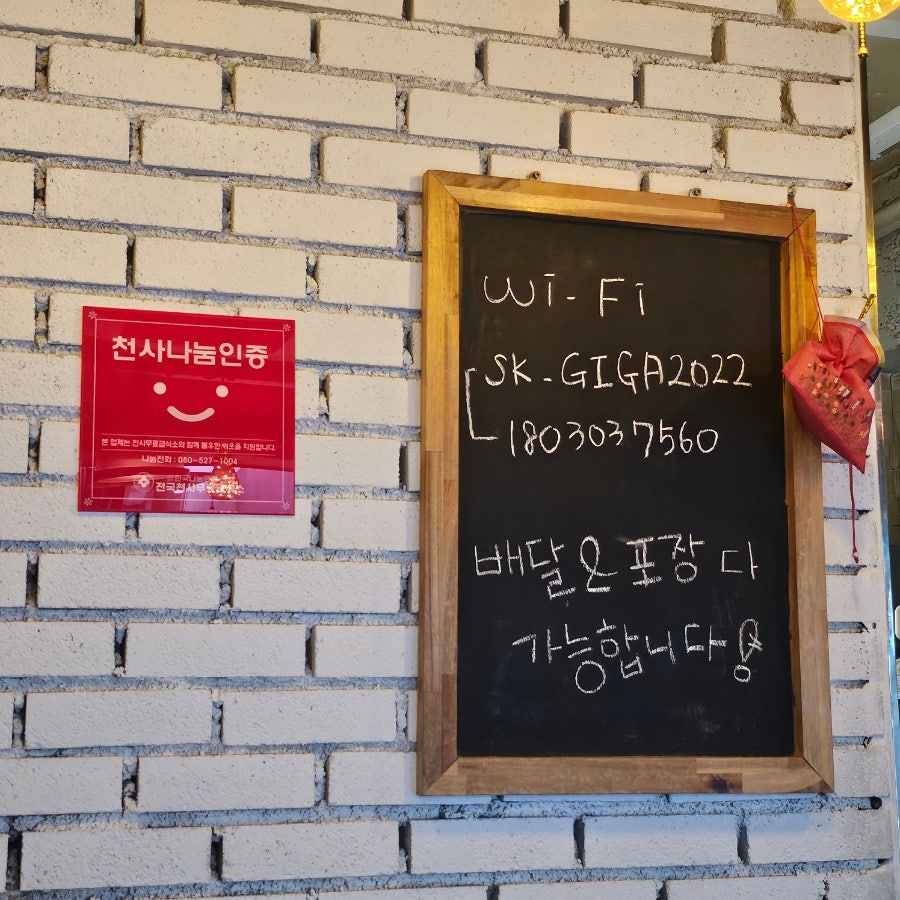 천사나눔인증
본 업체는 천사무료급식소와 함께 불우한 이웃을 지원합니다.
나눔전화 : 080-527-1004
전국천사무료급식소
Wi-Fi
SK-GIGA2022
1803037560
배달 & 포장 다
가능합니다!